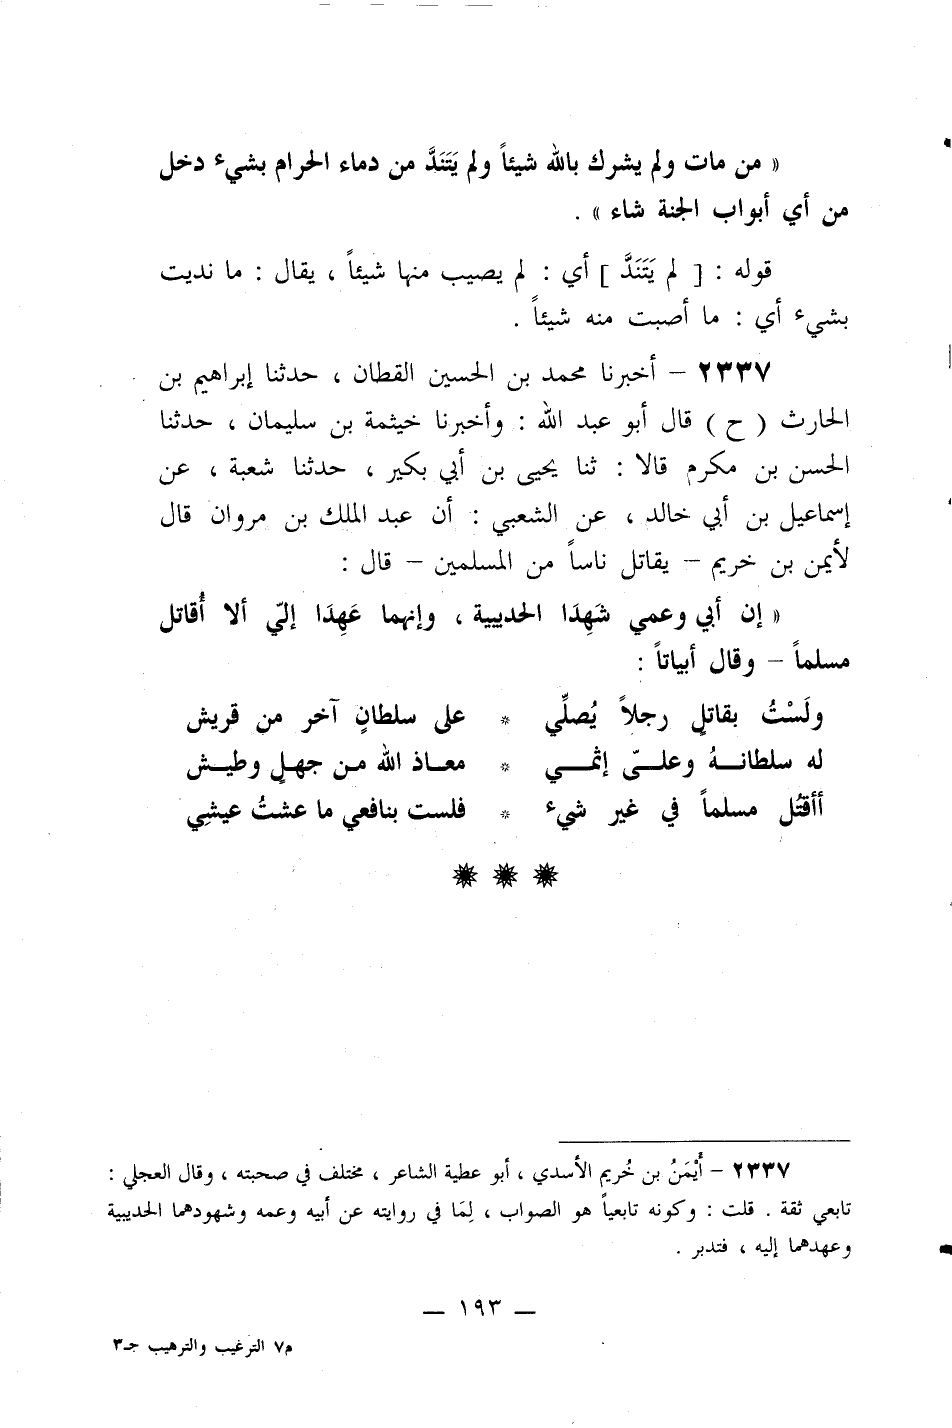 « من مات ولم يشرك بالله شيئاً ولم يَتَنَدَّ من دماء الحرام بشيء دخل
من أي أبواب الجنة شاء » .
قوله : [ لم يَتَنَدَّ ] أي : لم يصيب منها شيئاً ، يقال : ما نديت
بشيء أي : ما أصبت منه شيئاً .
٢٣٣٧ – أخبرنا محمد بن الحسين القطان ، حدثنا إبراهيم بن
الحارث ( ح ) قال أبو عبد الله : وأخبرنا خيثمة بن سليمان ، حدثنا
الحسن بن مكرم قالا : ثنا يحيى بن أبي بكير ، حدثنا شعبة ، عن
إسماعيل بن أبي خالد ، عن الشعبي : أن عبد الملك بن مروان قال
لأيمن بن خريم – يقاتل ناساً من المسلمين – قال :
« إن أبي وعمي شَهِدَا الحديبية ، وإنهما عَهِدَا إليّ ألا أُقاتل
مسلماً – وقال أبياتاً :
ولَسْتُ بقاتلٍ رجلاً يُصلِّي * على سلطانٍ آخر من قريش
له سلطانـــهُ وعلـــيّ إثمـــي * معـــاذ الله مـن جهـلٍ وطيـــش
أأقتُل مسلماً في غير شيء * فلست بنافعي ما عشتُ عيشِي
٢٣٣٧ – أَيْمَنُ بن خُريم الأسدي ، أبو عطية الشاعر ، مختلف في صحبته ، وقال العجلي :
تابعي ثقة . قلت : وكونه تابعياً هو الصواب ، لِمَا في روايته عن أبيه وعمه وشهودهما الحديبية
وعهدهما إليه ، فتدبر .
— ١٩٣ —
م٧ الترغيب والترهيب جـ٣